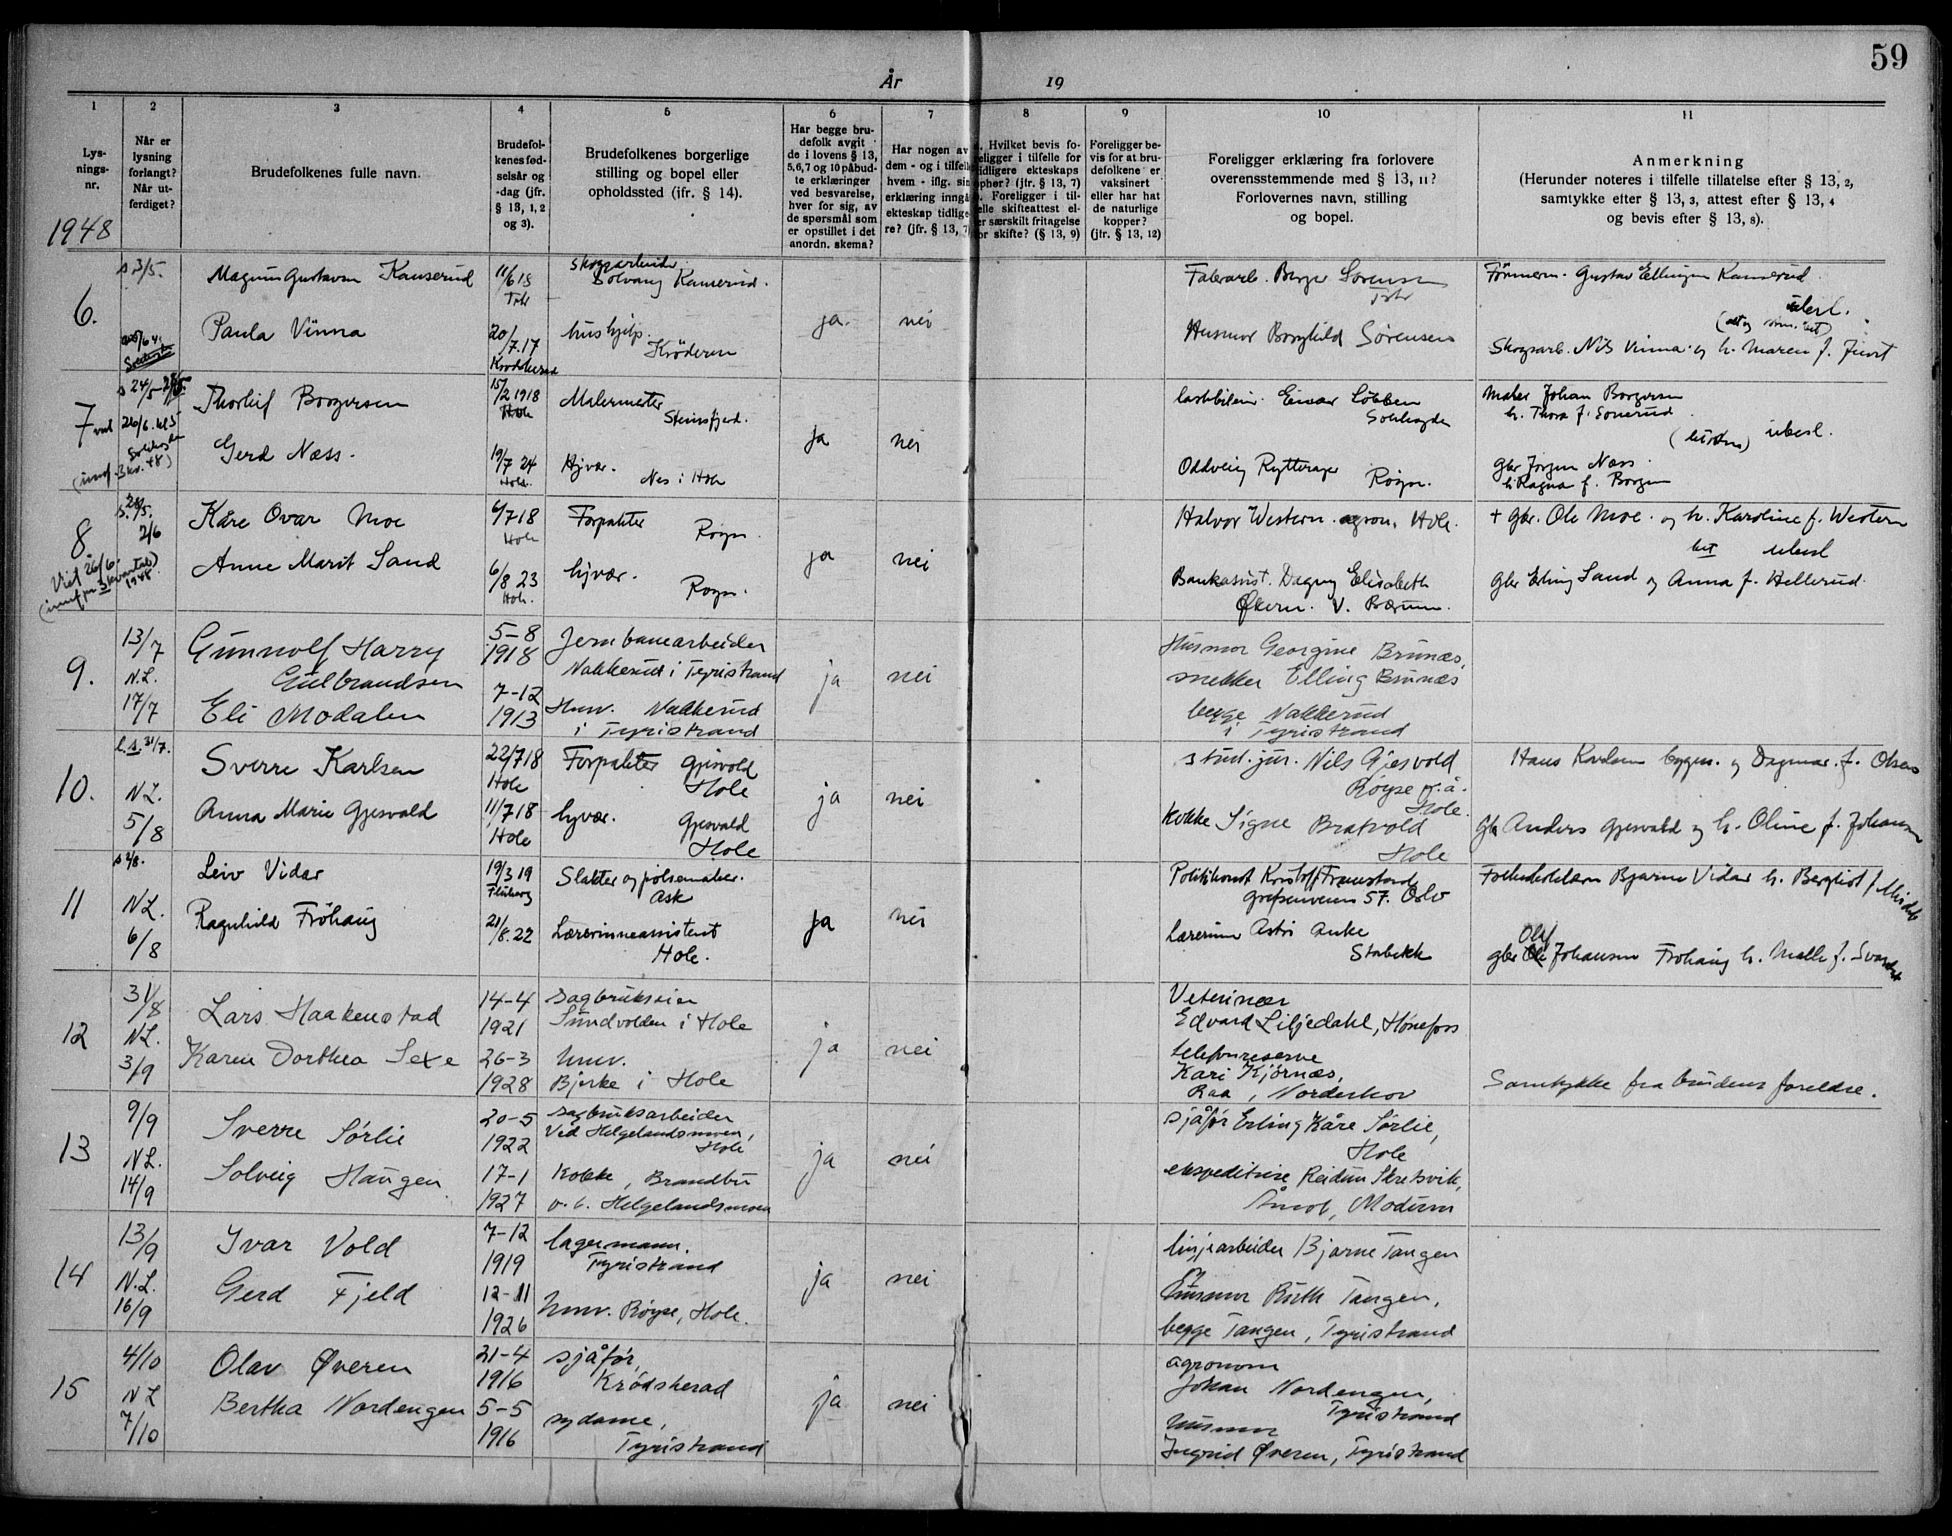 59
År 19
1
2
3
4
5
6
7
8
9
10
11
Lys-
nings-
nr.
Når er
lysning
forlangt?
Når ut-
ferdiget?
Brudefolkenes fulle navn.
Brudefol-
kenes fød-
selsår og
-dag (jfr.
§ 13, 1, 2
og 3).
Brudefolkenes borgerlige
stilling og bopel eller
opholdssted (jfr. § 14).
Har begge bru-
defolk avgit
de i lovens § 13,
5,6,7 og 10 påbud-
te erklæringer
ved besvarelse,
hver for sig, av
de spørsmål som
er opstillet i det
anordn. skema?
Har nogen av
dem - og i tilfelle
hvem - iflg. sin
erklæring inngå
ekteskap tidlige-
re? (jfr. § 13, 7)
Hvilket bevis fo-
religger i tilfelle for
tidligere ekteskaps
ophør? (jfr. § 13, 7)
Foreligger i til-
felle skifteattest el-
er særskilt fritagelse
or skifte? (§ 13, 9)
Foreligger be-
vis for at bru-
defolkene er
vaksinert
eller har hat
de naturlige
kopper?
(jfr. § 13, 12)
Foreligger erklæring fra forlovere
overensstemmende med § 13, 11?
Forlovernes navn, stilling
og bopel.
Anmerkning
(Herunder noteres i tilfelle tillatelse efter § 13, 2,
samtykke efter § 13, 3, attest efter § 13, 4
og bevis efter § 13, 8).
1948
6.
s 3/5.
Magnus Gustavsen Kanserud
11/6 18
skogsarbeider
Solvang Kanserud.
Paula Vinna
20/7.17
Krødsherad
hushjelp.
Krøderen
ja.
nei
Fabrarb. Birger Sørensen
Husmor Borghild Sørensen
Gustav Ellingsen Kanserud
ubesl.
Skogsarb. Nils Vinna og h. Maren f.
7
s 24/5
26/6. kl 5
Thorleif Borgersen
15/2 1918
Hole
Malermester
Steinsfjord.
Gerd Næss.
19/7 24
Hole.
Hjvær.
Nes i Hole
ja
nei
Einar Løbben
Sollihøgda
Oddveig Rytterager Røyse.
Maler Johan Borgersen
h. Thora f. Sonerud
ubesl.
gbr Jørgen Næss.
h. Ragna f. Borgen
8
s. 28/5.
2/6
Viet 26/6.
1948
Kåre Ovar Moe
6/7 18
Hole
Forpakter
Røyse
Anne Marit Sand
6/8 23
Hole.
hjvær.
Røyse.
ja
nei
Halvor Western. agron. Hole.
Bankassist. Dagny Elisabeth
Økern. V. Bærum.
+ gbr. Ole Moe. og h. Karoline f. Western
ubesl
gbr Erling Sand og Anna f. Hellerud.
9.
13/7
N.L.
17/7
Gunnolf Harry
Gulbrandsen
5-8
1918
Jernbanearbeider
Nakkerud i Tyristrand
Eli Modalen
7-12
1913
Husv. Nakkerud
i Tyristrand
ja
nei
Husmor Georgine Brunæs,
snekker Elling Brunæs
begge Nakkerud
i Tyristrand
10.
l.s. 31/7.
N L.
5/8
Sverre Karlsen
22/7 18
Hole
Forpakter Gjesvold
Hole
Anna Marie Gjesvald
11/7 18
Hole
hjvær. Gjesvald
Hole
ja
nei
stud. jur. Nils Gjesvold
Røyse p.å.
Hole.
Kokke Signe Bratvold
Hole
Hans Karlsen og Dagmar f. Olsen
gbr Anders Gjesvald og h. Oline f. Johansen
11
s 2/8.
N L.
6/8
Leiv Vidar
19/3 19
Fluberg
Slakter og pølsemaker.
Ask
Ragnhild Frøhaug
21/8.22
Lærerinneassistent
Hole.
ja
nei
Politikonst Kristoff Framstad
Grefsenveien 57. Oslo
Lærerinne Astri Anke
Stabekk
Bjarne Vidar h. Bergliot f.
gbr Olaf Johansen Frøhaug h. Malle f.
12
31/8
N L.
3/9
Lars Haakenstad
14-4
1921
sagbrukseier
Sundvolden i Hole
Karen Dorthea Sexe
26-3
1928
hmv.
Bjerke i Hole
ja
nei
Veterinær
Edvard Liljedahl, Hønefoss
telefonreserve
Kari Kjørnæs,
Raa, Norderhov
Samtykke fra brudens foreldre.
13
9/9
N L.
14/9
Sverre Sørlie
20-5
1922
sagbruksarbeider
ved Helgelandsmoen,
Hole
Solveig Haugen
17-1
1927
Kokke, Brandbu
v. b. Helgelandsmoen
ja
nei
sjåfør Erling Kåre Sørlie,
Hole
ekspeditrise Reidun Skretsvik,
Åmot, Modum
14
13/9
N.L.
16/9
Ivar Vold
7-12
1919
lagermann.
Tyristrand
Gerd Fjeld
12-11
1926
hmv. Røyse, Hole.
ja
nei
linjearbeider Bjarne Tangen
og
husmor Ruth Tangen,
begge Tangen, Tyristrand
15
4/10
N L
7/10
Olav Øveren
21-4
1916
sjåfør,
Krødsherad
Bertha Nordengen
5-5
1916
sydame,
Tyristrand
ja
nei
agronom
Johan Nordengen,
Tyristrand
husmor
Ingrid Øveren, Tyristrand